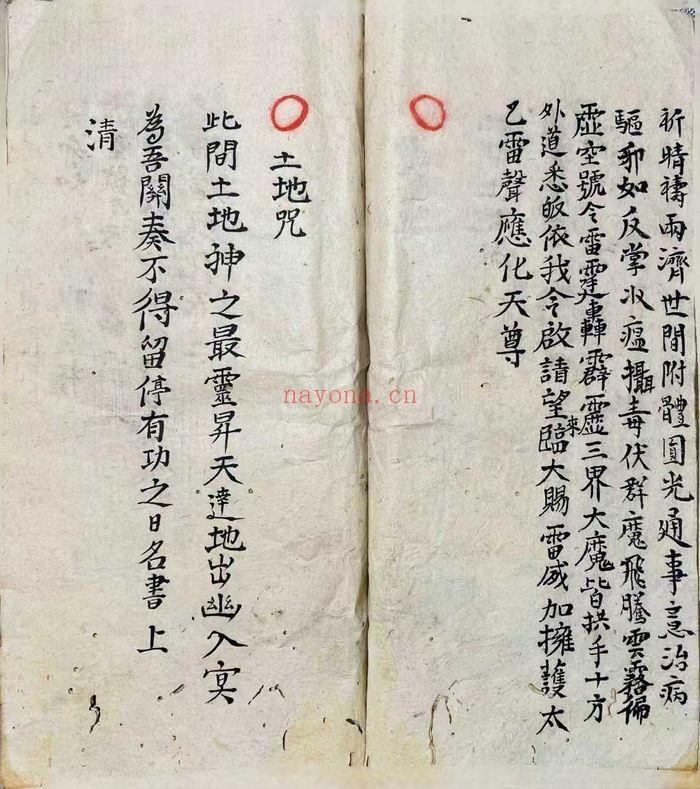 祈晴禱雨濟世間附體圓光通事意治病
驅邪如反掌收瘟攝毒伏群魔飛騰雲霧徧
虛空號令雷霆轟霹靂三界大魔皆拱手十方
外道悉皈依我今啟請望來臨大賜雷威加擁護太
乙雷聲應化天尊
土地咒
此間土地神之最靈昇天達地出幽入冥
為吾關奏不得留停有功之日名書上
清
nayona.cn